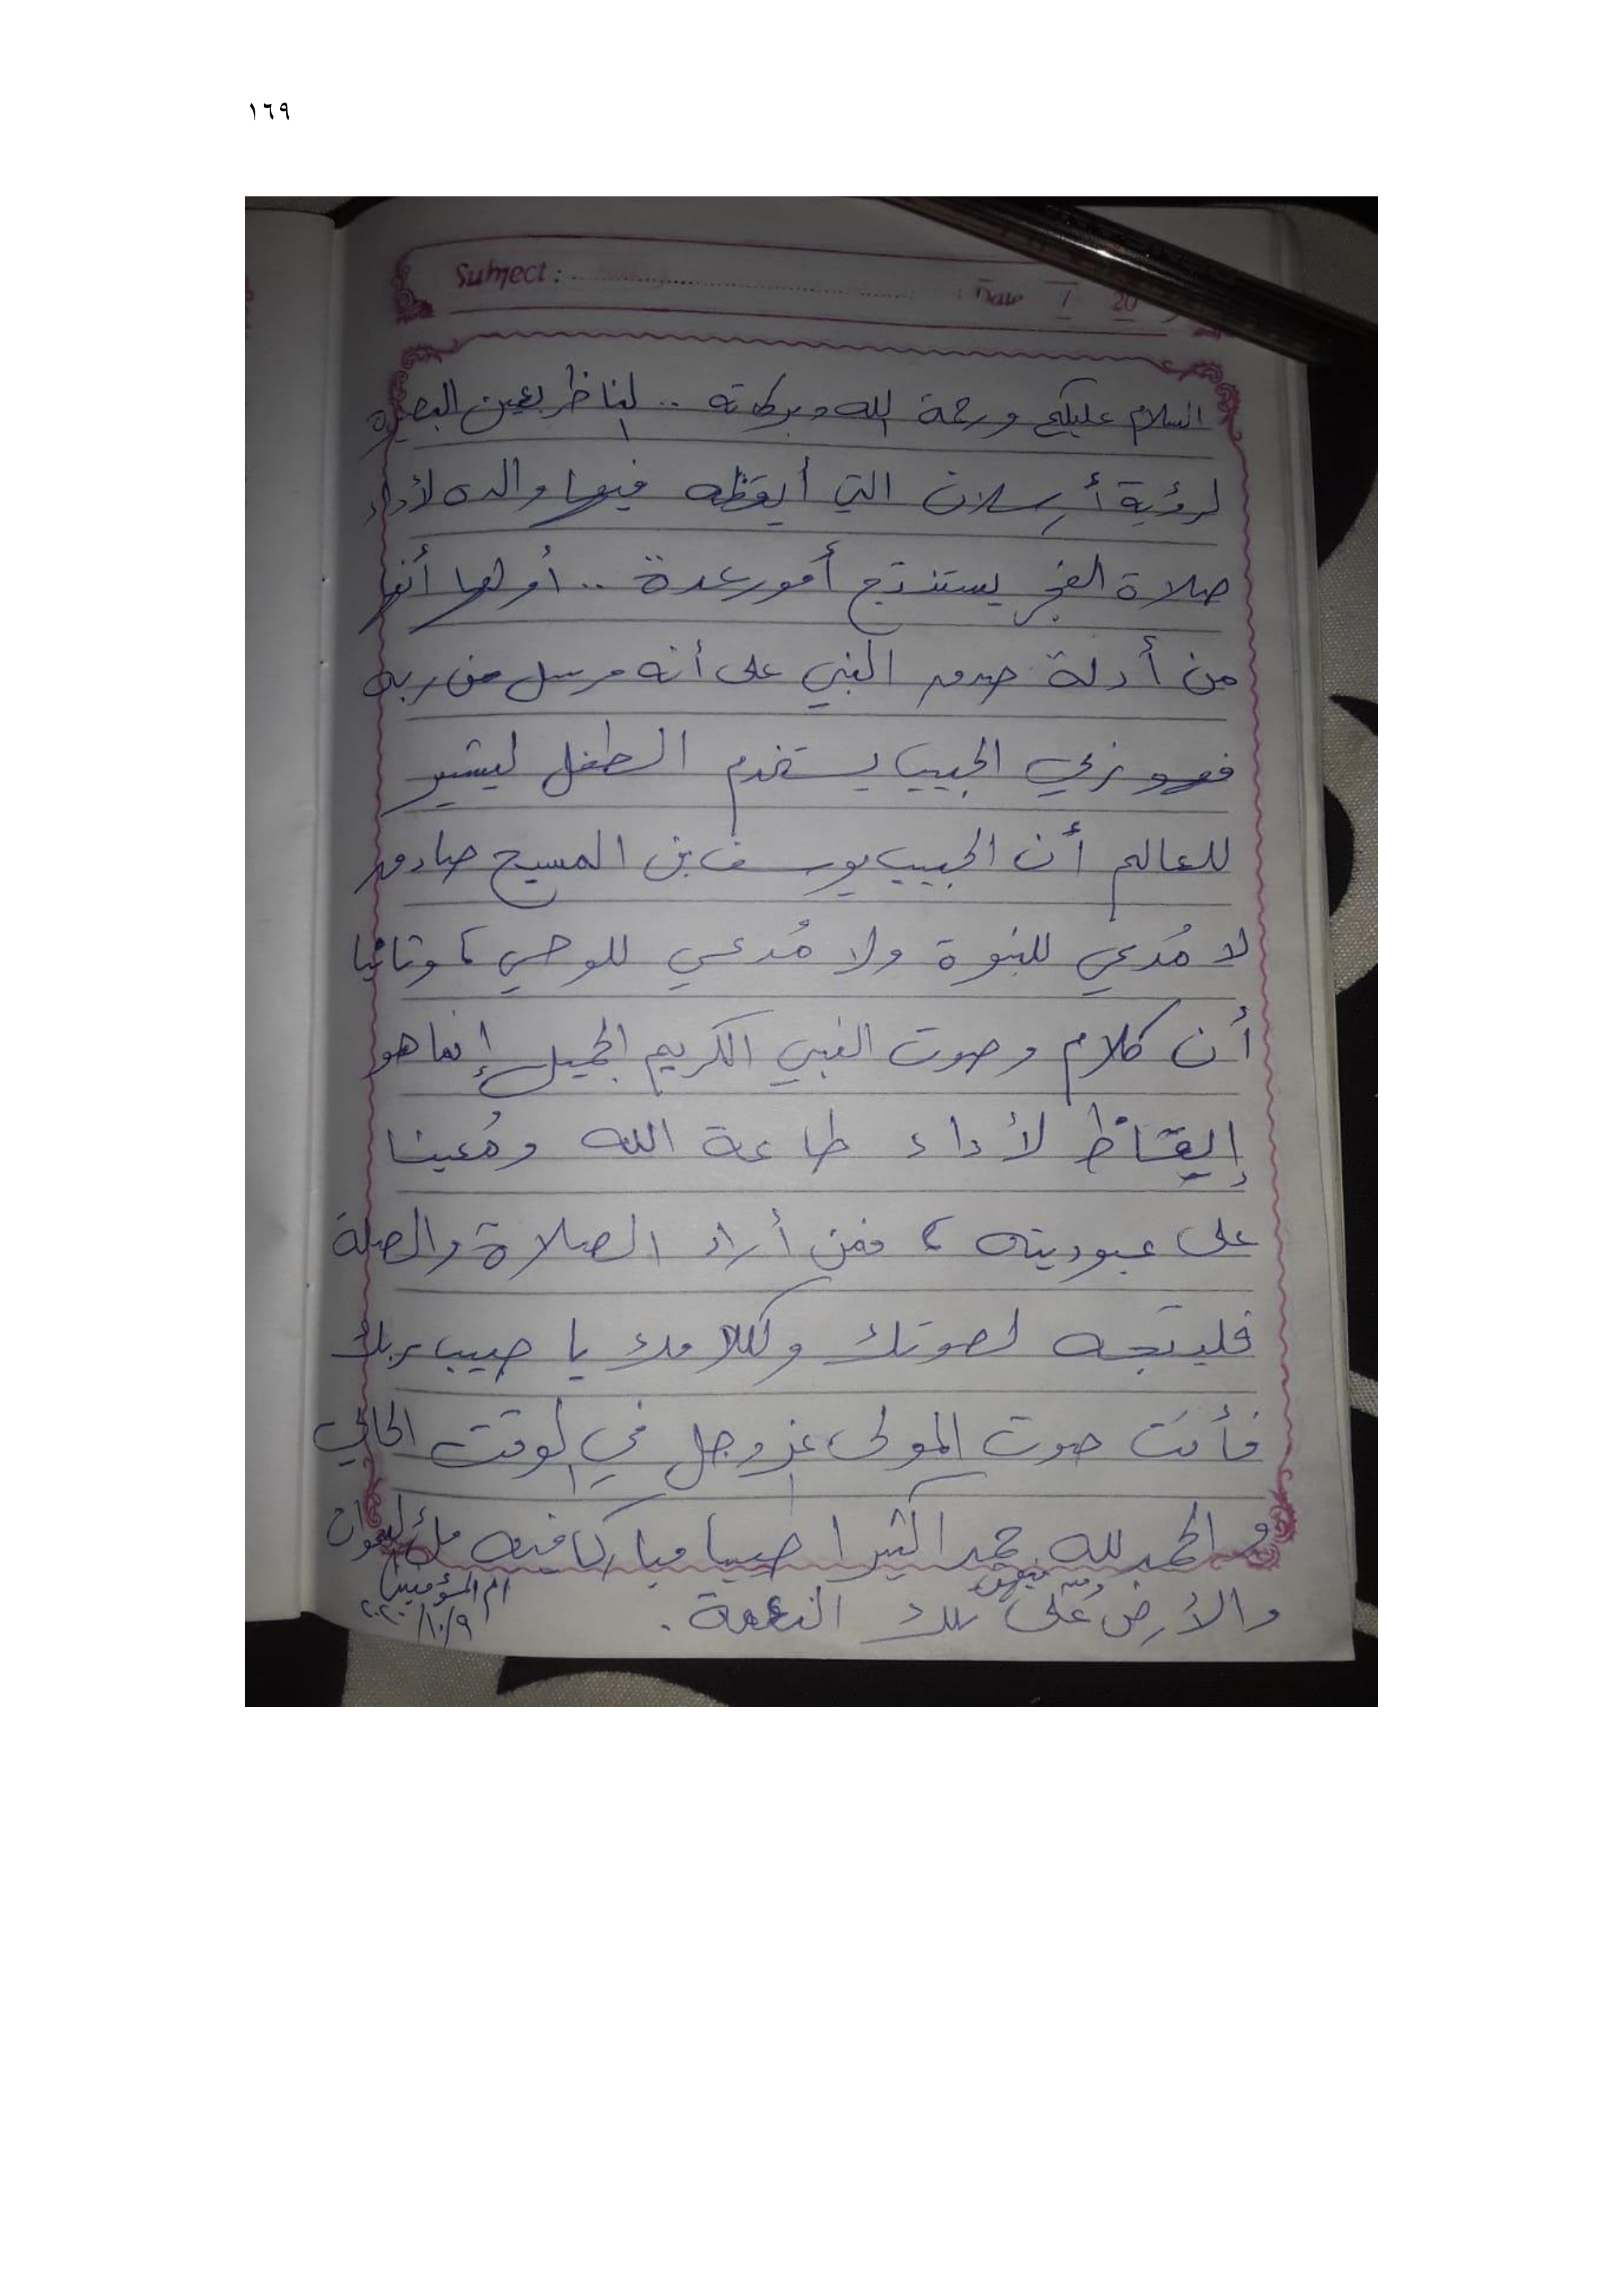 ١٦٩
Subject :
Date / 20
السلام عليكم ورحمة الله وبركاته .. الناظر بعين البصيرة
لرؤية أرسلان التي أيقظه فيها والده لأداء
صلاة الفجر يستنتج أمور عدة .. أولها أنها
من أدلة صدق النبي على أنه مرسل من ربه
فهو ربي الحبيب يستخدم الطفل ليشير
للعالم أن الحبيب يوسف بن المسيح صادق
لا مُدعي للنبوة ولا مُدعي للوحي ، وثانيا
أن كلام وصوت النبي الكريم الجميل إنما هو
إيقاظ لأداء طاعة الله ومُعينا
على عبوديته ، فمن أراد الصلاة والصلة
فليتجه لصوتك ولكلامك يا حبيب ربك
فأنت صوت المولى عز وجل في الوقت الحالي
و الحمد لله حمدا كثيرا طيبا مباركا فيه ملئ السموات
والأرض على تلك النعمة .
ام المؤمنين
٢٠٢٠/١٠/٩